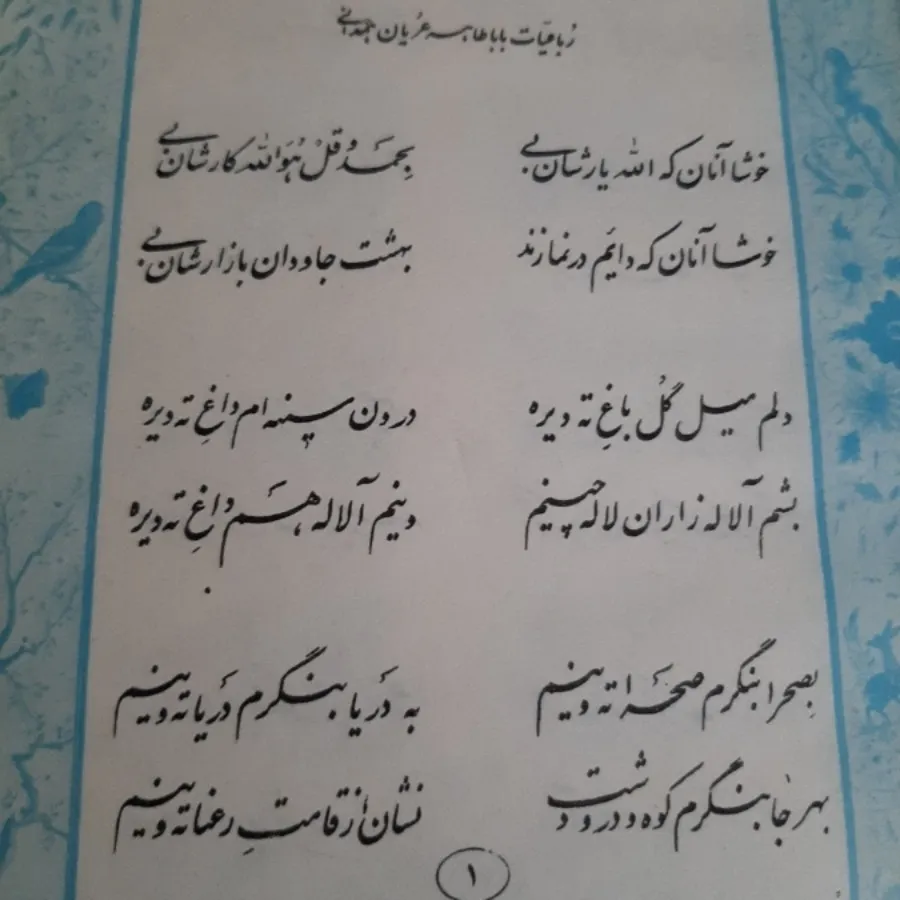 رُباعیّات بابا طاهر عُریان همدانی
خوشا آنان که الله یارشان بی بِحَمد و قُلْ هُوَ الله کارشان بی
خوشا آنان که دایَم در نمازند بهشت جاودان بازارشان بی
دلم میل گُل باغِ ته دیره درون سینه ام داغِ ته دیره
بشم آلاله زاران لاله چینیم وینیم آلاله هَم داغِ ته دیره
بِصحرا بنگرم صحَرا ته وینیم به دَریا بنگرم دَریا ته وینیم
بهر جا بنگرم کوه و در و دشت نشان از قامتِ رعنا ته وینیم
۱